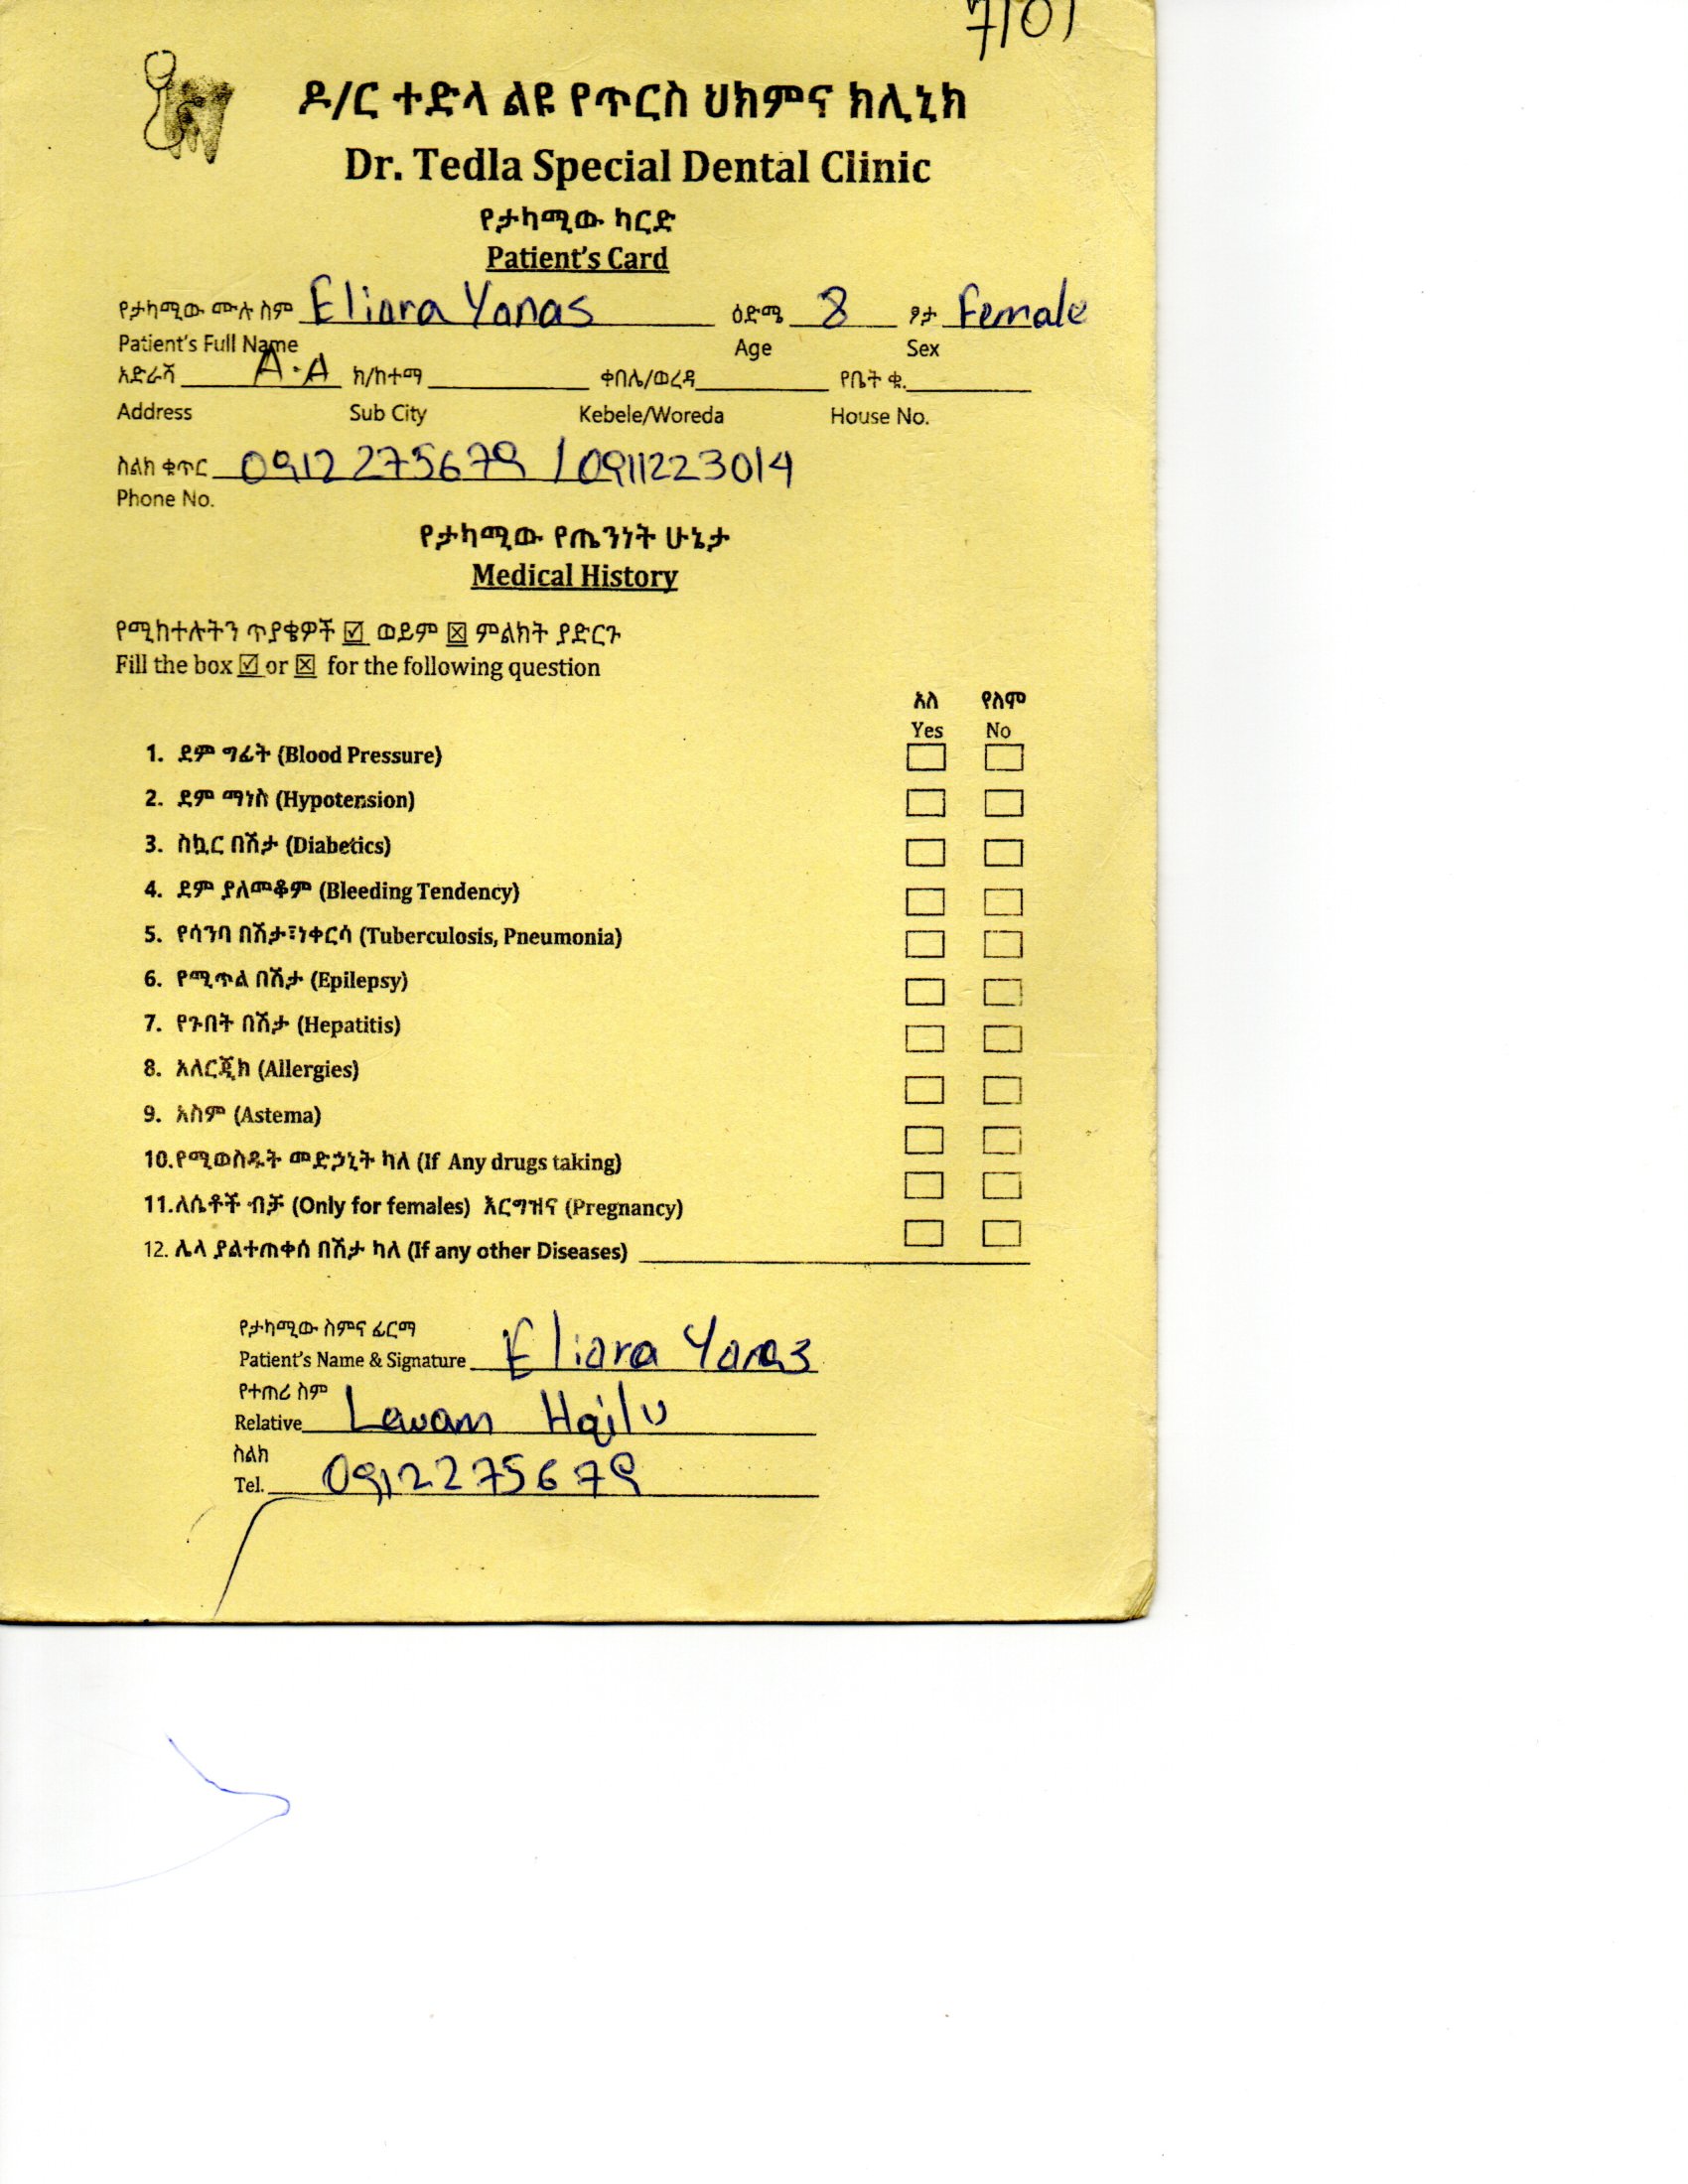 7101
ዶ/ር ተድላ ልዩ የጥርስ ህክምና ክሊኒክ
Dr. Tedla Special Dental Clinic
የታካሚው ካርድ
Patient's Card
የታካሚው ሙሉ ስም Eliara Yonas ዕድሜ 8 ፆታ Female
Patient's Full Name Age Sex
አድራሻ A.A ክ/ከተማ ቀበሌ/ወረዳ የቤት ቁ.
Address Sub City Kebele/Woreda House No.
ስልክ ቁጥር 0912275679 / 0911223014
Phone No.
የታካሚው የጤንነት ሁኔታ
Medical History
የሚከተሉትን ጥያቄዎች ☑ ወይም ☒ ምልክት ያድርጉ
Fill the box ☑ or ☒ for the following question
አለ የለም
Yes No
1. ደም ግፊት (Blood Pressure)
2. ደም ማነስ (Hypotension)
3. ስኳር በሽታ (Diabetics)
4. ደም ያለመቆም (Bleeding Tendency)
5. የሳንባ በሽታ፣ነቀርሳ (Tuberculosis, Pneumonia)
6. የሚጥል በሽታ (Epilepsy)
7. የጉበት በሽታ (Hepatitis)
8. አለርጂክ (Allergies)
9. አስም (Astema)
10.የሚወስዱት መድኃኒት ካለ (If Any drugs taking)
11.ለሴቶች ብቻ (Only for females) እርግዝና (Pregnancy)
12. ሌላ ያልተጠቀሰ በሽታ ካለ (If any other Diseases)
የታካሚው ስምና ፊርማ
Patient's Name & Signature Eliara Yonas
የተጠሪ ስም
Relative Lewam Hailu
ስልክ
Tel. 0912275679